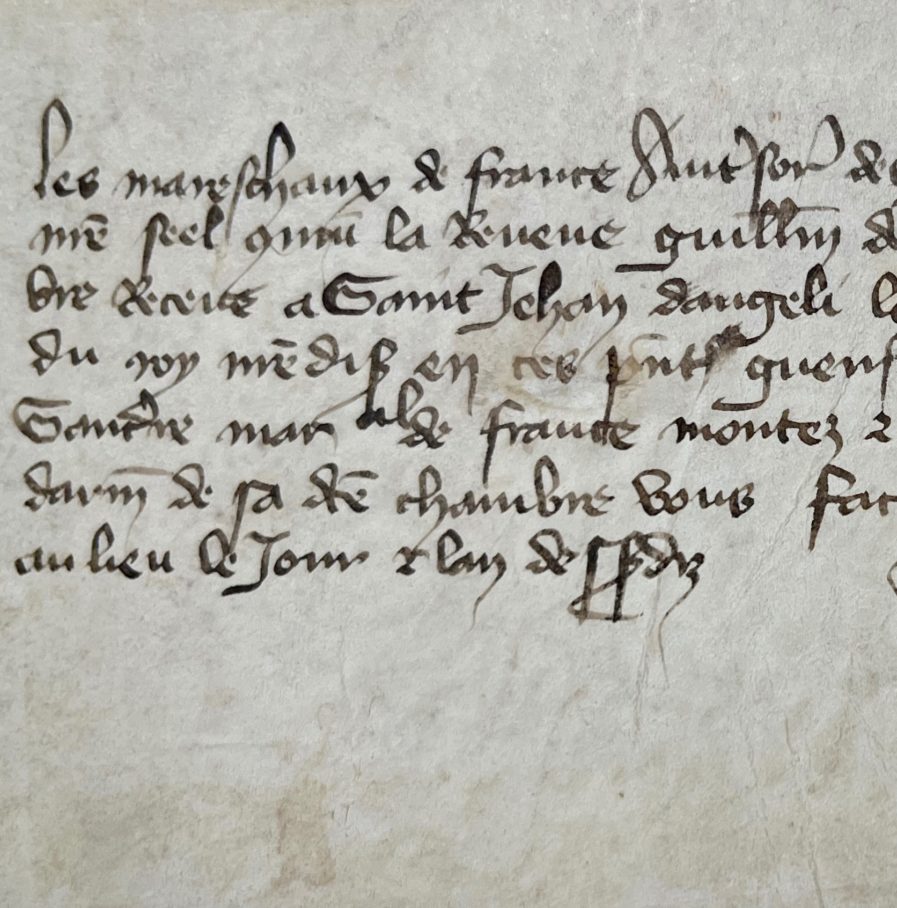 les mareschaux de france A nr̄e tresor̄ de
nr̄e seel la Reveue guill̄m d
bre Receue a Saint Jehan dangeli l
du roy nr̄e dis en ces pn̄t guerr
mar̄ de france montez z
darm̄ de sa dc̄e chambre vous fac
au lieu le Jour z lan de